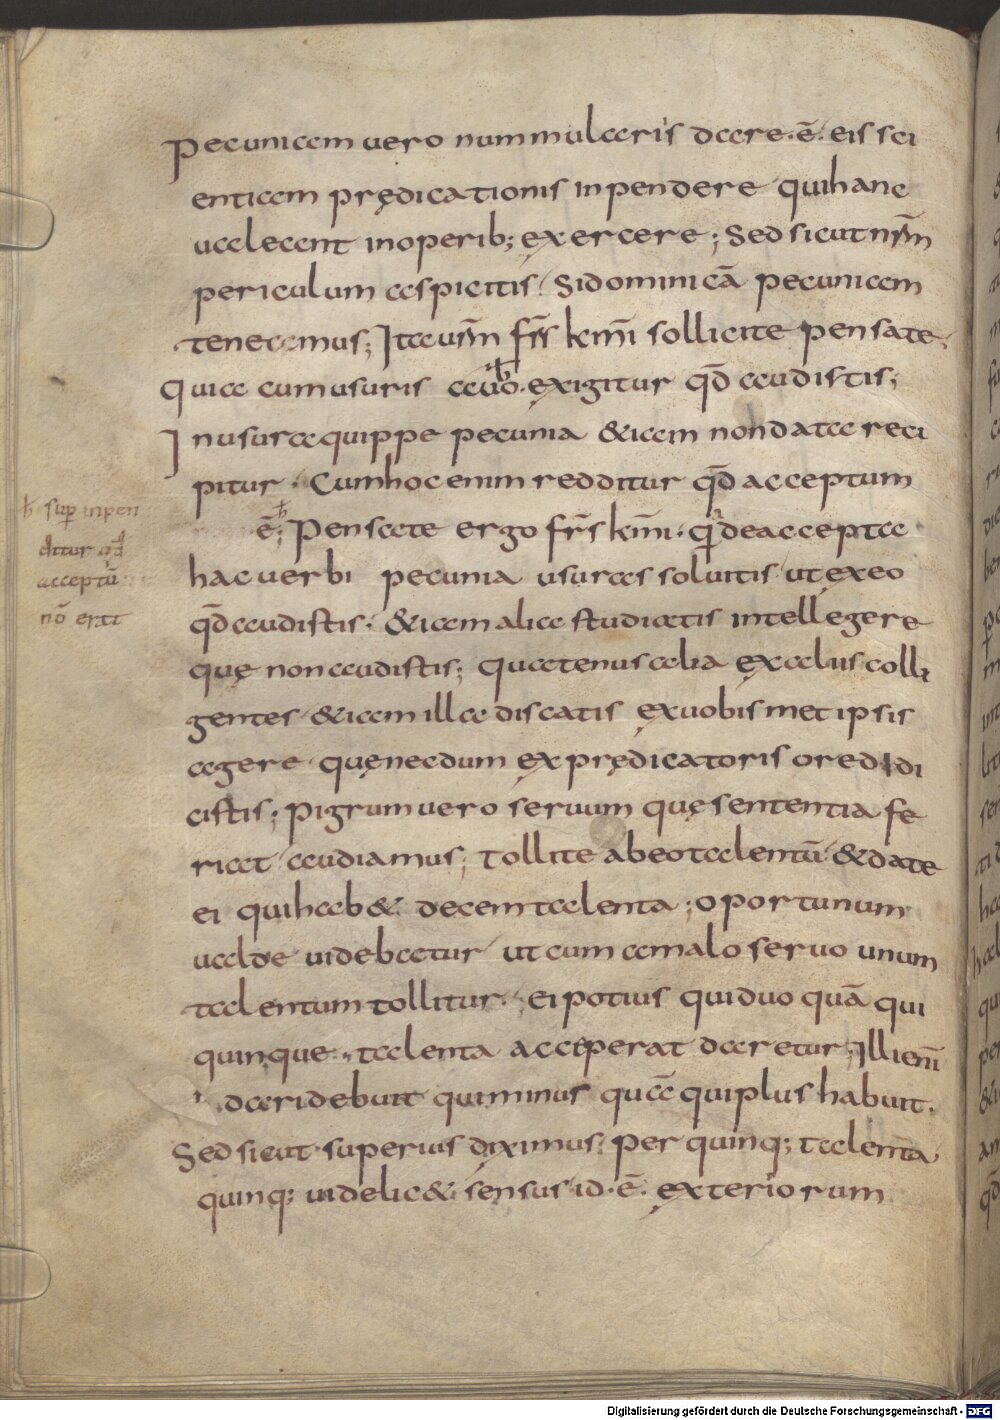 Pecuniam uero nummulariis dare·ē· eis sci
entiam prędicationis inpendere qui hanc
ualeant in operib; exercere; Sed sicut nr̄m
periculum aspicitis Si dominicā pecuniam
teneamus; Ita ur̄m fr̄s km̄i sollicite pensate
Quia cum usuris a uob· exigitur qđ audistis;
In usura quippe pecunia &iam non data reci
pitur· Cum hoc enim redditur qđ acceptum
ē; Pensate ergo fr̄s km̄i· qđ de accepta
hac uerbi pecunia usuras soluitis ut ex eo
qđ audistis· &iam alia studiatis intellegere
quę non audistis; quatenus alia ex aliis colli
gentes &iam illa discatis ex uobismet ipsis
agere quę necdum ex prędicatoris ore didi
cistis; Pigrum uero seruum quę sententia fe
riat audiamus; Tollite ab eo talentū & date
ei qui hab& decem talenta; oportunum
ualde uidebatur ut cum a malo seruo unum
talentum tollitur· ei potius qui duo quā qui
quinque· talenta acceperat daretur; Illi enī
dari debuit qui minus quā qui plus habuit·
Sed sicut superius diximus· per quinq; talenta
quinq; uidelic& sensus id·ē· exteriorum
sup inpen
ditur qđ
acceptū
nō erit
Digitalisierung gefördert durch die Deutsche Forschungsgemeinschaft - DFG